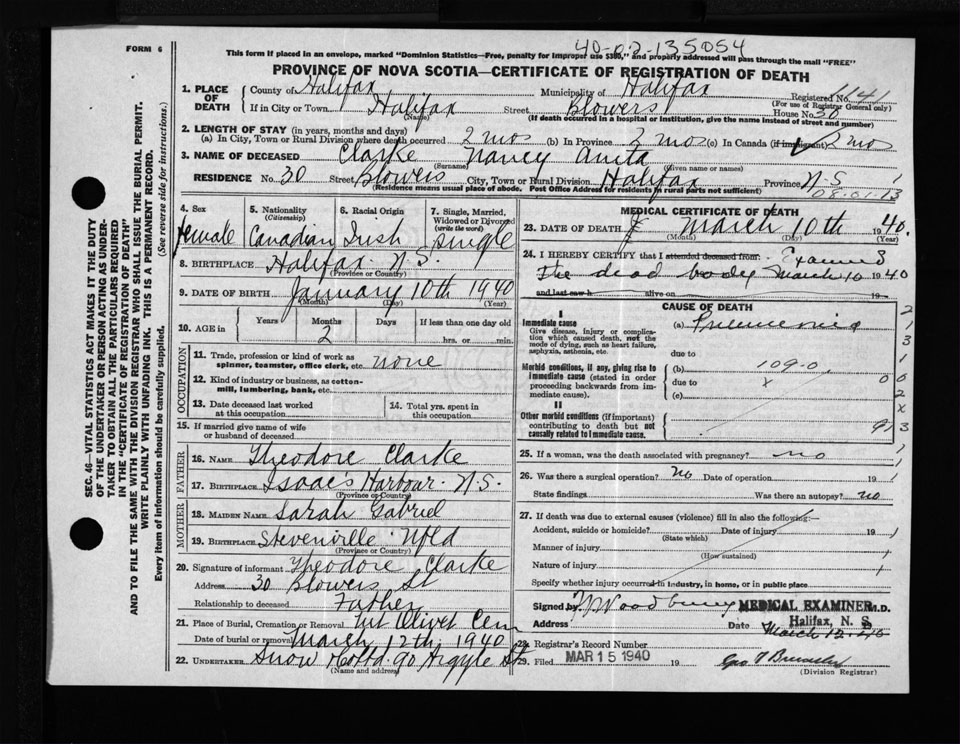 40-02-135054
FORM 6
This form if placed in an envelope, marked "Dominion Statistics—Free, penalty for improper use $300," and properly addressed will pass through the mail "FREE"
PROVINCE OF NOVA SCOTIA—CERTIFICATE OF REGISTRATION OF DEATH
SEC. 46—VITAL STATISTICS ACT MAKES IT THE DUTY OF THE UNDERTAKER OR PERSON ACTING AS UNDERTAKER TO OBTAIN ALL THE PARTICULARS REQUIRED IN THE "CERTIFICATE OF REGISTRATION OF DEATH" AND TO FILE THE SAME WITH THE DIVISION REGISTRAR WHO SHALL ISSUE THE BURIAL PERMIT.
WRITE PLAINLY WITH UNFADING INK. THIS IS A PERMANENT RECORD.
Every item of information should be carefully supplied. (See reverse side for instructions.)
1. PLACE OF DEATH County of Halifax Municipality of Halifax Registered No. 1141
(For use of Registrar General only)
If in City or Town Halifax Street Blowers House No. 30
(Name) (If death occurred in a hospital or institution, give the name instead of street and number)
2. LENGTH OF STAY (in years, months and days)
(a) In City, Town or Rural Division where death occurred 2 mos (b) In Province 2 mos (c) In Canada (if immigrant) 2 mos
3. NAME OF DECEASED Clarke Nancy Anita
(Surname) (Given name or names)
RESIDENCE No. 30 Street Blowers City, Town or Rural Division Halifax Province N.S
(Residence means usual place of abode. Post Office Address for residents in rural parts not sufficient)
08-01-13
4. Sex female
5. Nationality (Citizenship) Canadian
6. Racial Origin Irish
7. Single, Married, Widowed or Divorced (write the word) single
8. BIRTHPLACE Halifax N.S.
(Province or Country)
9. DATE OF BIRTH January 10th 1940
(Month) (Day) (Year)
10. AGE in Years Months 2 Days If less than one day old hrs. or min.
OCCUPATION
11. Trade, profession or kind of work as spinner, teamster, office clerk, etc. none
12. Kind of industry or business, as cotton-mill, lumbering, bank, etc.
13. Date deceased last worked at this occupation
14. Total yrs. spent in this occupation
15. If married give name of wife or husband of deceased
FATHER
16. NAME Theodore Clarke
17. BIRTHPLACE Isaac's Harbour N.S.
(Province or Country)
MOTHER
18. MAIDEN NAME Sarah Gabriel
19. BIRTHPLACE Stevenville Nfld
(Province or Country)
20. Signature of informant Theodore Clarke
Address 30 Blowers St
Relationship to deceased Father
21. Place of Burial, Cremation or Removal Mt Olivet Cem
Date of burial or removal March 12th 1940
22. UNDERTAKER Snow & Co Ltd 90 Argyle St
(Name and address)
MEDICAL CERTIFICATE OF DEATH
23. DATE OF DEATH March 10th 1940
(Month) (Day) (Year)
24. I HEREBY CERTIFY that I attended deceased from: Examined
the dead body March 10 1940
and last saw h alive on 19
CAUSE OF DEATH
I
Immediate cause (a) Pneumonia
Give disease, injury or complication which caused death, not the mode of dying, such as heart failure, asphyxia, asthenia, etc.
due to
Morbid conditions, if any, giving rise to immediate cause (stated in order proceeding backwards from immediate cause).
(b) 109-0
due to x
(c)
II
Other morbid conditions (if important) contributing to death but not causally related to immediate cause.
25. If a woman, was the death associated with pregnancy? no
26. Was there a surgical operation? no Date of operation 19
State findings Was there an autopsy? no
27. If death was due to external causes (violence) fill in also the following:—
Accident, suicide or homicide? Date of injury 19
(State which)
Manner of injury
(How sustained)
Nature of injury
Specify whether injury occurred in industry, in home, or in public place
Signed by Woodbury MEDICAL EXAMINER M.D.
Address Halifax, N. S
Date March 12-40
28. Registrar's Record Number
29. Filed MAR 15 1940 19
(Division Registrar)